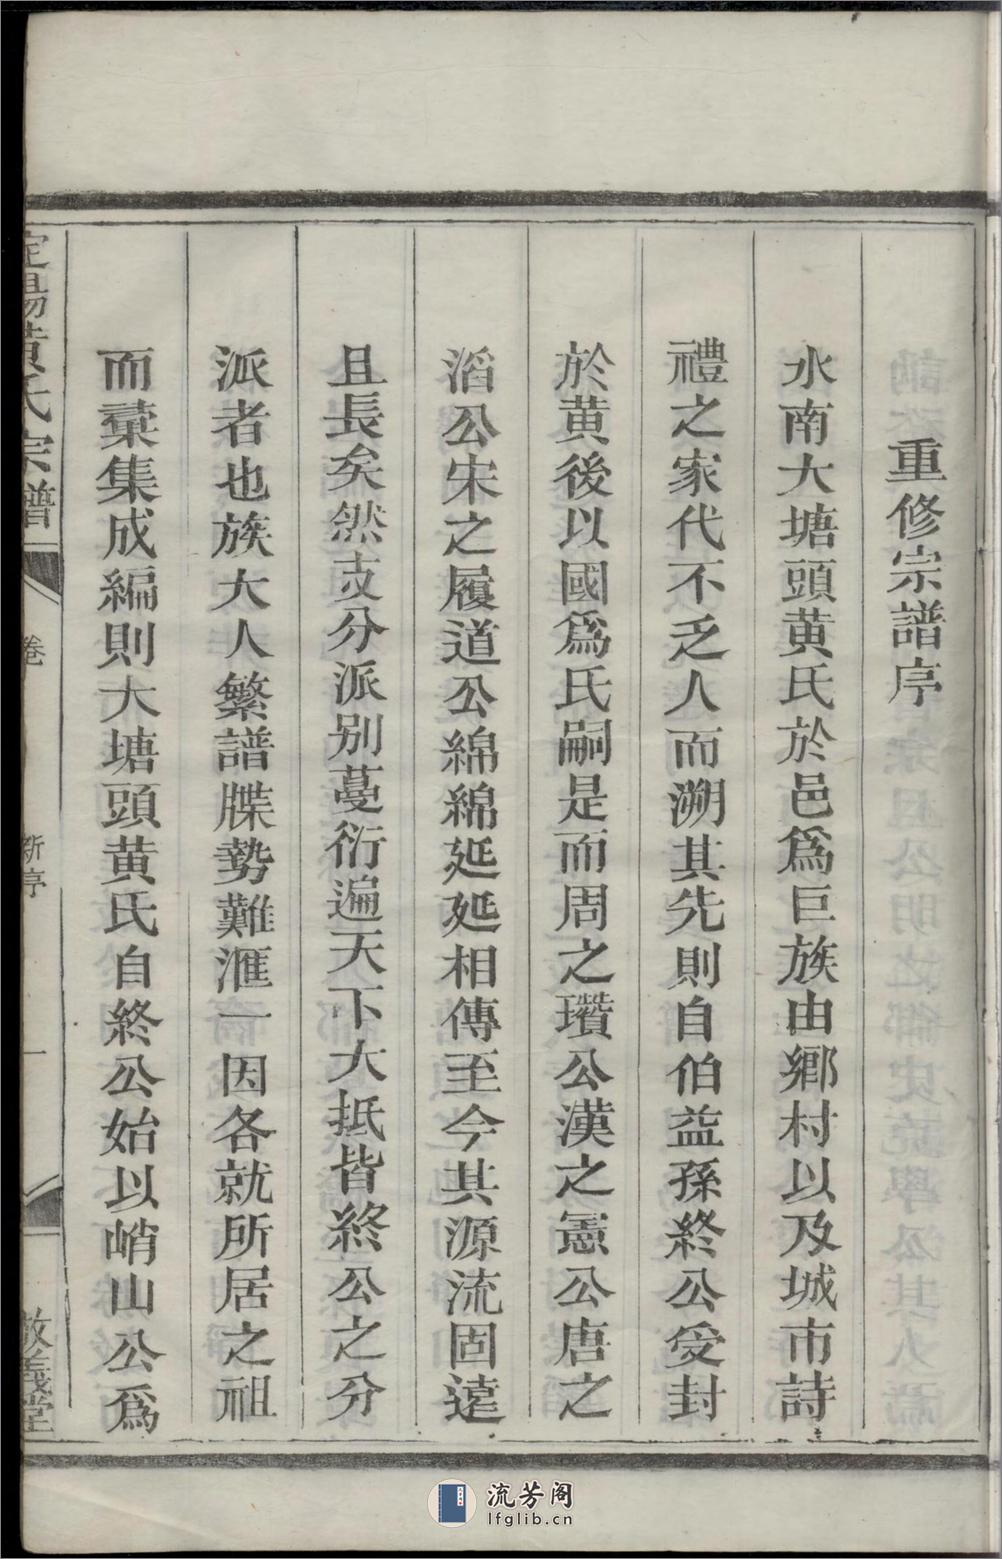 重修宗譜序
水南大塘頭黄氏於邑爲巨族由鄉村以及城市詩
禮之家代不乏人而溯其先則自伯益孫終公受封
於黄後以國爲氏嗣是而周之瓚公漢之憲公唐之
滔公宋之履道公綿綿延延相傳至今其源流固遠
且長矣然支分派别蔓衍遍天下大抵皆終公之分
派者也族大人繁譜牒勢難滙一因各就所居之祖
而彚集成編則大塘頭黄氏自終公始以峭山公爲
定陽黄氏宗譜
卷
新序
一
敘義堂
流芳阁
lfglib.cn